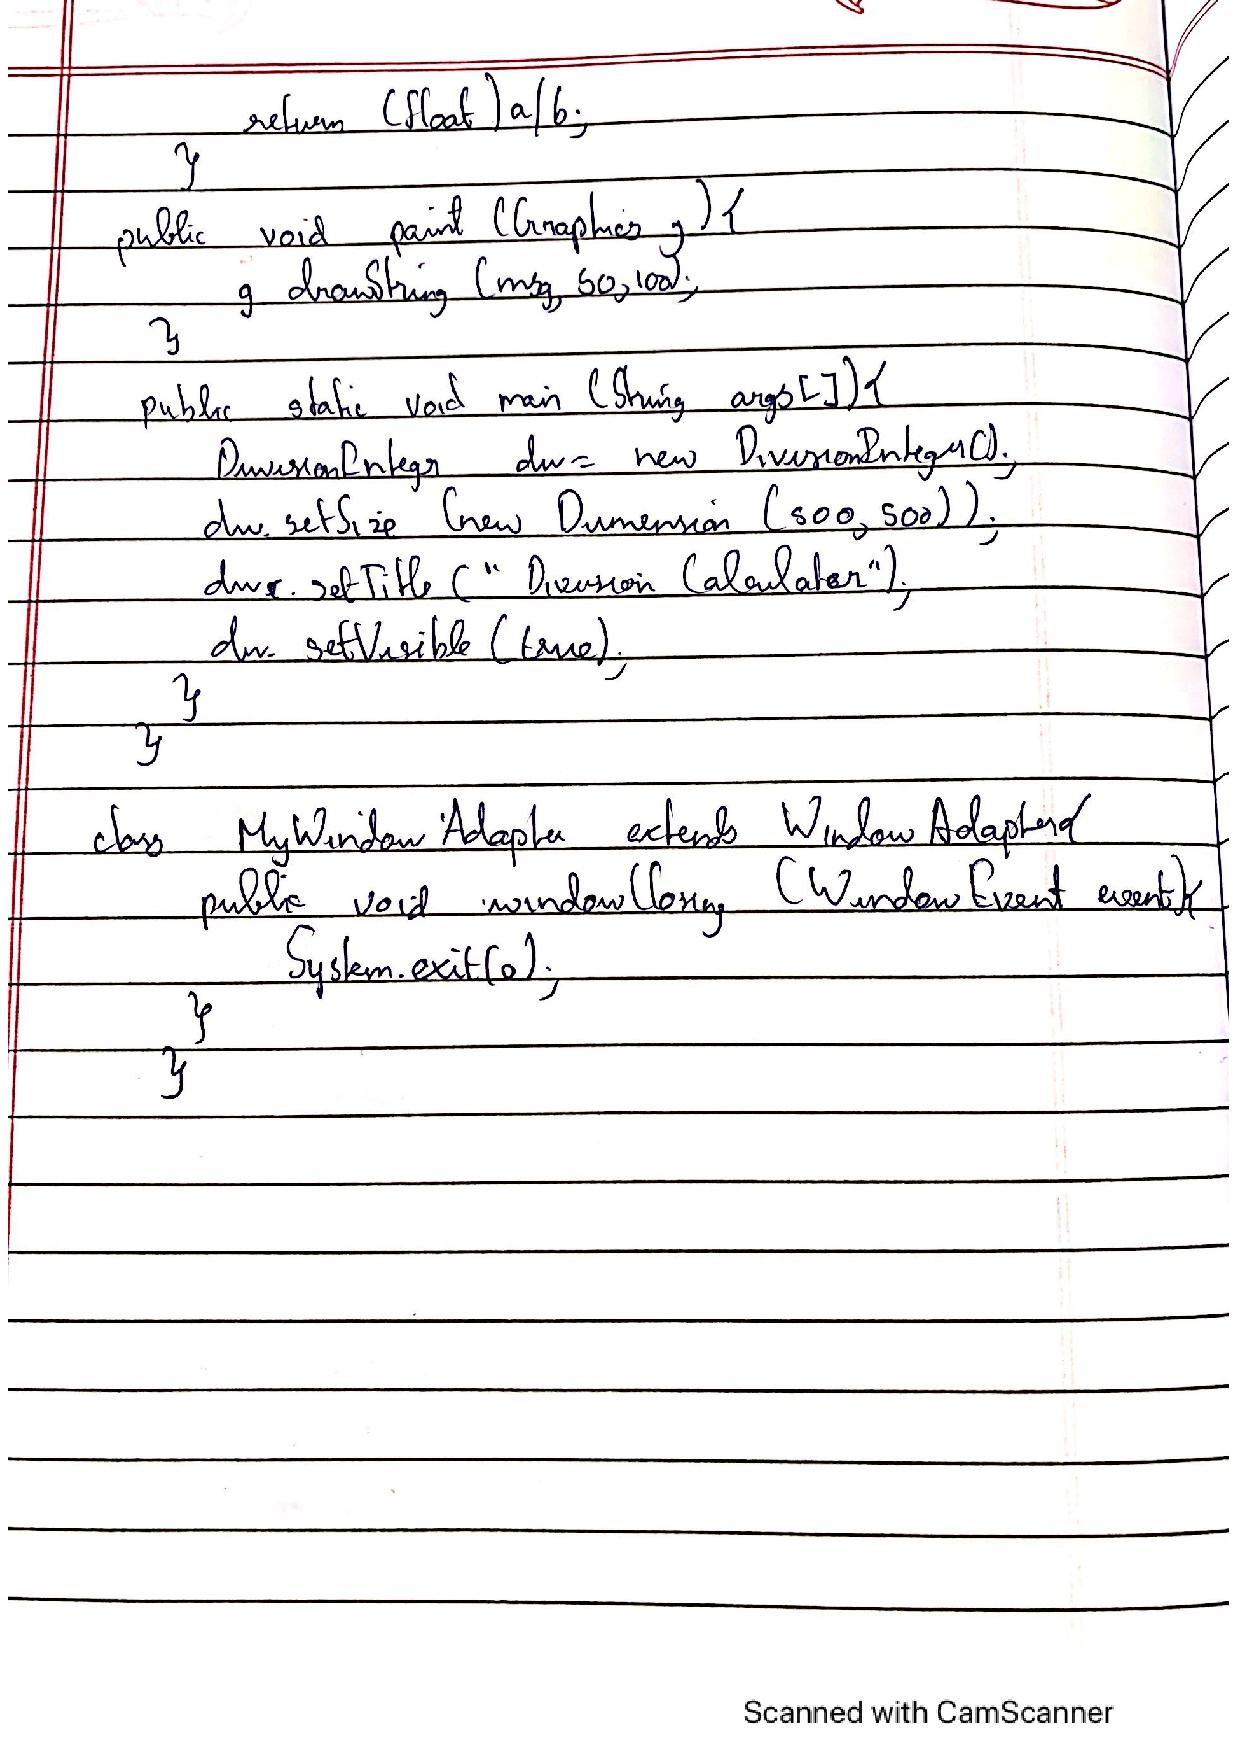 return (float)a/b;
}
public void paint (Graphics g){
g drawString (msg, 50,100);
}
public static void main (String args[]){
DivisionInteger dw = new DivisionInteger();
dw. setSize (new Dimension (500, 500));
dw. setTitle (" Division Calculator");
dw. setVisible (true);
}
}
class MyWindowAdapter extends WindowAdapter{
public void windowClosing (WindowEvent event){
System.exit(0);
}
}
Scanned with CamScanner